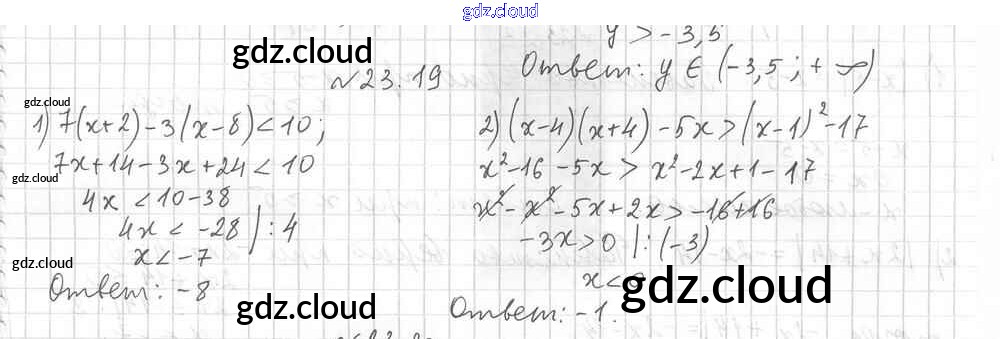 gdz.cloud
y > -3,5
gdz.cloud
Ответ: y ∈ (-3,5 ; + ∞)
№23.19
gdz.cloud
1) 7(x+2)-3(x-8)<10;
7x+14-3x+24<10
gdz.cloud
4x <10-38
4x < -28 | : 4
x < -7
gdz.cloud
Ответ: -8
gdz.cloud
2) (x-4)(x+4)-5x>(x-1)²-17
x²-16-5x > x²-2x+1-17
x²-x²-5x+2x>-16+16
-3x>0 | : (-3)
x<0
gdz.cloud
Ответ: -1.